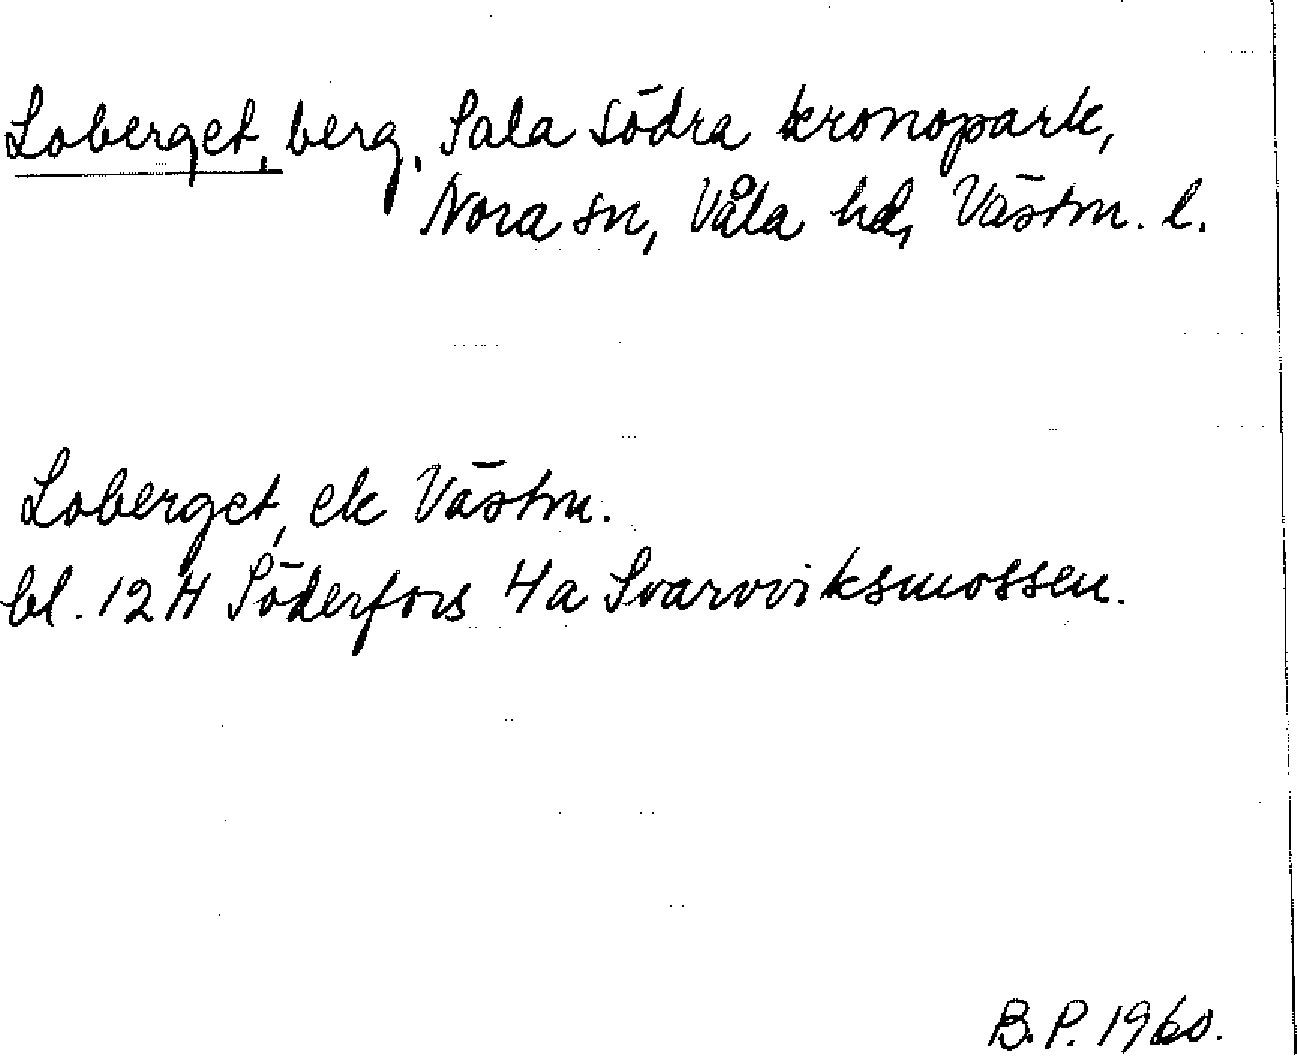 Loberget, berg, Sala södra kronopark,
Nora sn, Våla hd, Västm. l.
Loberget, ek Västm.
bl. 12 H Söderfors 4a Svarvviksmossen.
B.P. 1960.